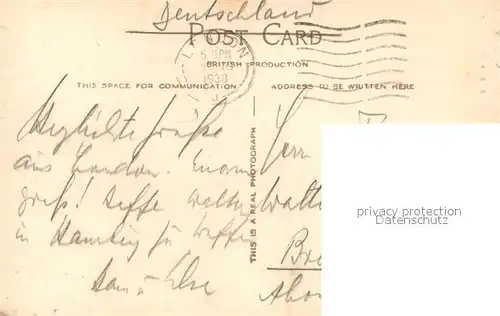 Deutschland
POST CARD
LONDON
1938
BRITISH PRODUCTION
THIS SPACE FOR COMMUNICATION
ADDRESS TO BE WRITTEN HERE
THIS IS A REAL PHOTOGRAPH
Herzlichste Grüße
aus London. Enorm
groß! Hoffe
in Hamburg zu treffen
u. Else
Herrn
Bre
privacy protection
Datenschutz